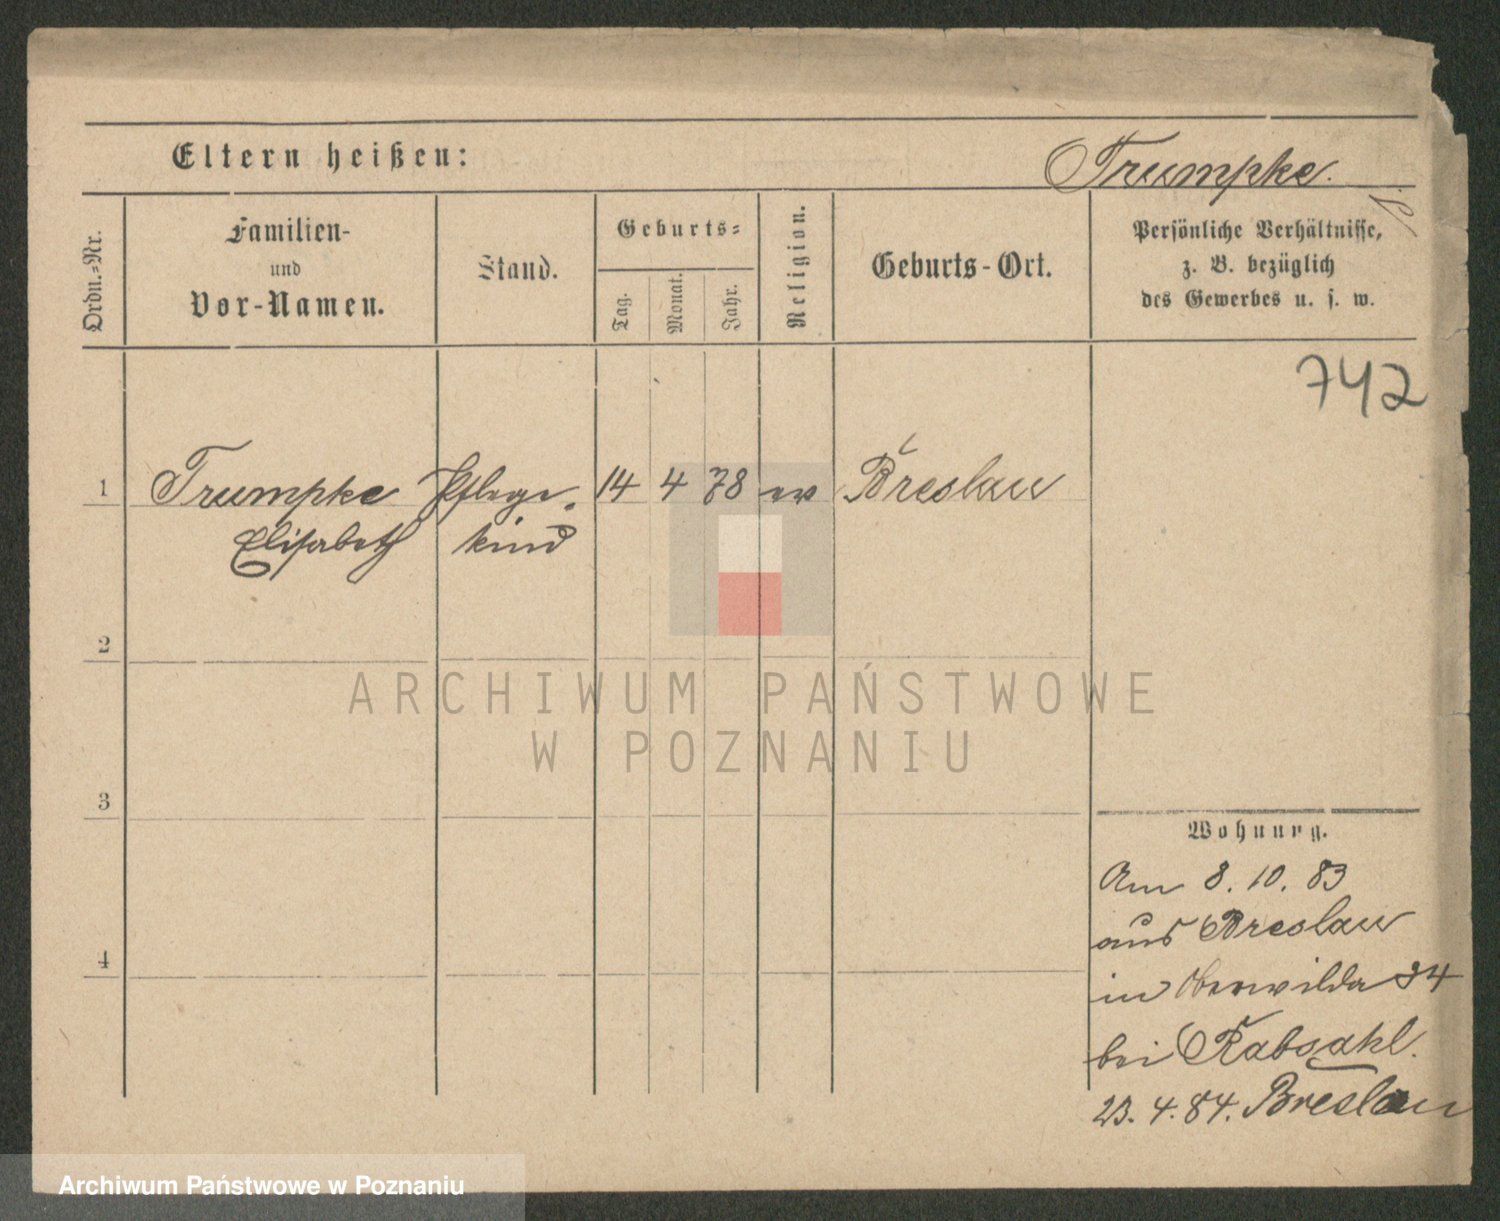 Eltern heißen:
Trumpke.
Ordn.-Nr.
Familien-
und
Vor-Namen.
Stand.
Geburts-
Tag.
Monat.
Jahr.
Religion.
Geburts-Ort.
Persönliche Verhältnisse,
z. B. bezüglich
des Gewerbes u. s. w.
742
1 Trumpke Pflege- 14 4 78 ev Breslau
Elisabeth kind
2
3
4
Wohnung.
Am 8. 10. 83
aus Breslau
in Oberwilda 34
bei Rabsahl.
23. 4. 84. Breslau
ARCHIWUM PAŃSTWOWE
W POZNANIU
Archiwum Państwowe w Poznaniu